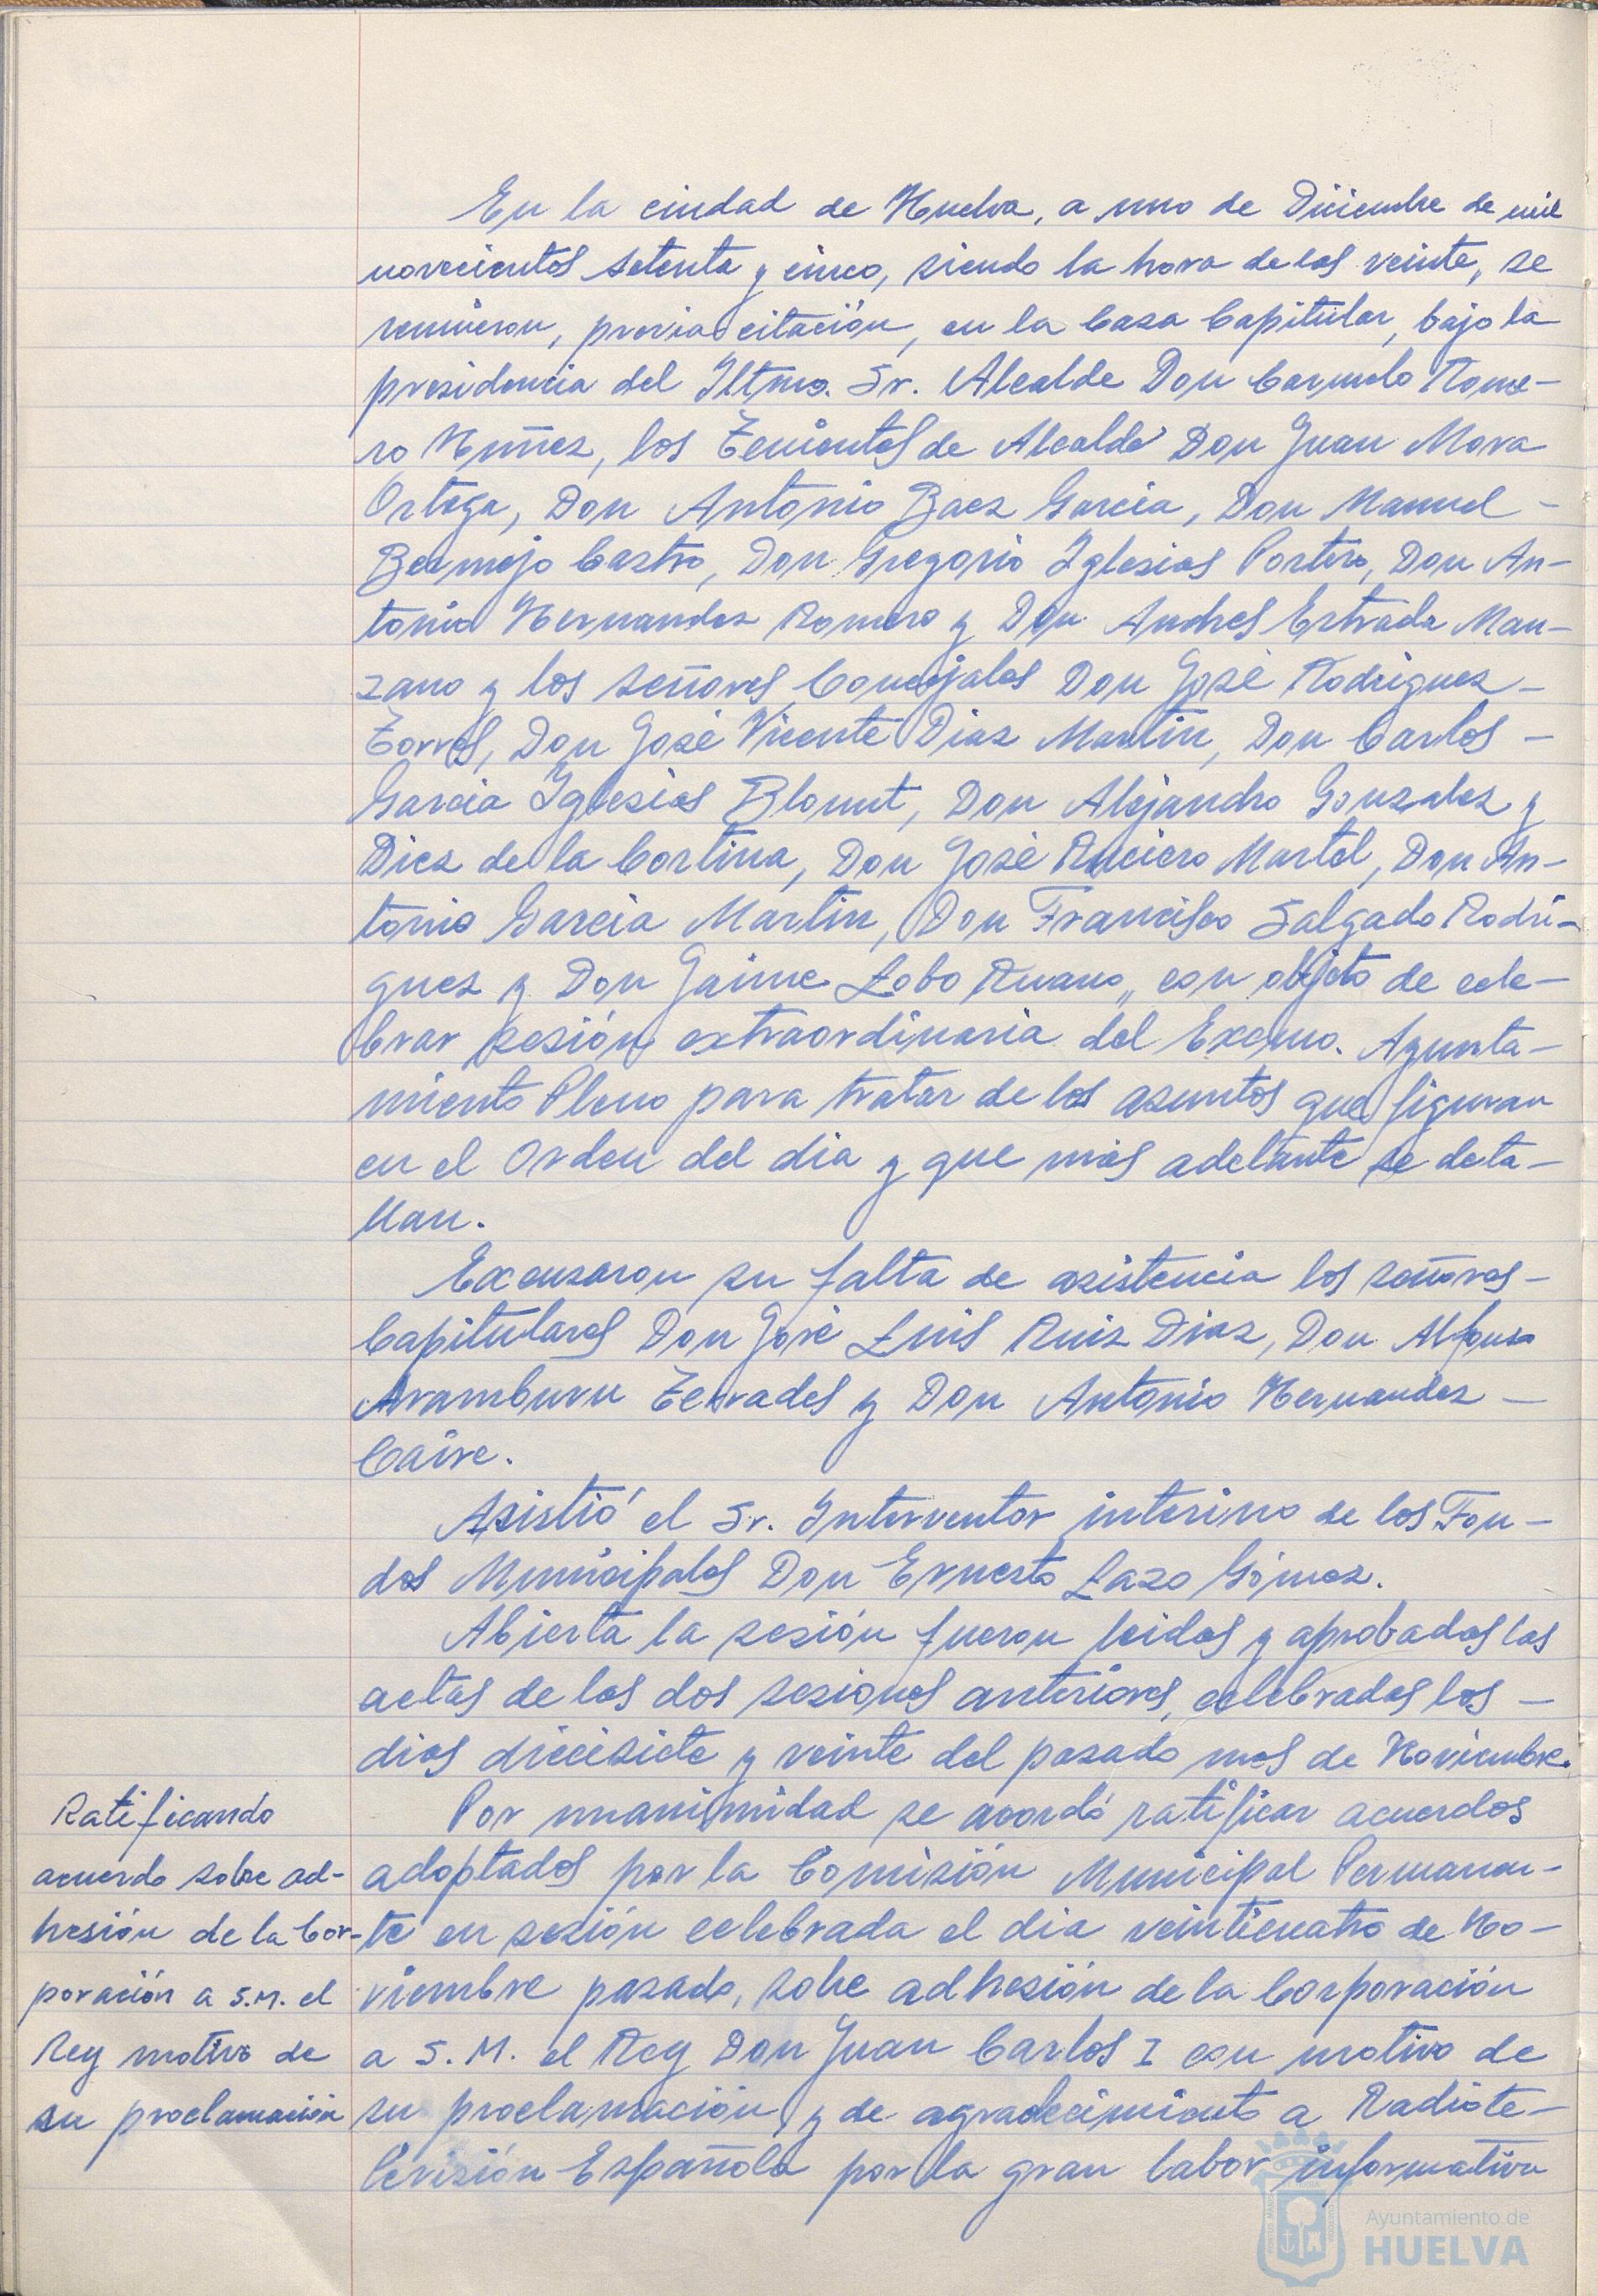 En la ciudad de Huelva, a uno de Diciembre de mil
novecientos setenta y cinco, siendo la hora de las veinte, se
reunieron, previa citación, en la Casa Capitular, bajo la
presidencia del Iltmo. Sr. Alcalde Don Carmelo Rome-
ro Nuñez, los Tenientes de Alcalde Don Juan Mora
Ortega, Don Antonio Baez Garcia, Don Manuel -
Bermejo Castro, Don Gregorio Iglesias Portero, Don An-
tonio Hernandez Romero y Don Andres Estrada Man-
zano y los señores Concejales Don José Rodriguez -
Torres, Don José Vicente Diaz Martin, Don Carlos -
Garcia Iglesias Blount, Don Alejandro Gonzalez y
Diez de la Cortina, Don José Ruciero Martel, Don An-
tonio Garcia Martin, Don Francisco Salgado Rodri-
guez y Don Jaime Lobo Ruano, con objeto de cele-
brar sesión extraordinaria del Excmo. Ayunta-
miento Pleno para tratar de los asuntos que figuran
en el Orden del dia y que más adelante se deta-
llan.
Excusaron su falta de asistencia los señores -
Capitulares Don José Luis Ruiz Diaz, Don Alfonso
Aramburu Terrades y Don Antonio Hernandez -
Caire.
Asistió el Sr. Interventor interino de los Fon-
dos Municipales Don Ernesto Lazo Gómez.
Abierta la sesión fueron leidas y aprobadas las
actas de las dos sesiones anteriores, celebradas los -
dias diecisiete y veinte del pasado mes de Noviembre.
Ratificando
acuerdo sobre ad-
hesión de la Cor-
poración a S.M. el
Rey motivo de
su proclamación
Por unanimidad se acordó ratificar acuerdos
adoptados por la Comisión Municipal Permanen-
te en sesión celebrada el dia veinticuatro de No-
viembre pasado, sobre adhesión de la Corporación
a S. M. el Rey Don Juan Carlos I con motivo de
su proclamación y de agradecimiento a Radiote-
levisión Española por la gran labor informativa
Ayuntamiento de
HUELVA